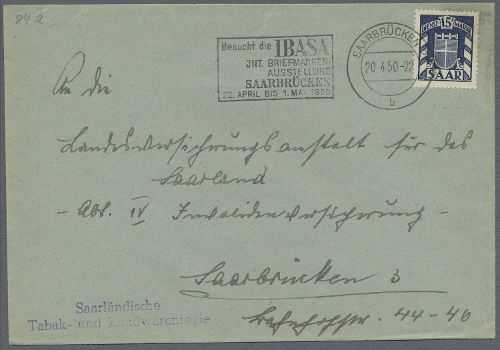 84 a
Besucht die IBASA
JNT. BRIEFMARKEN-
AUSSTELLUNG
SAARBRÜCKEN
22. APRIL BIS 1. MAI 1950
SAARBRÜCKEN
20.4.50.-22
b
DIENSTMARKE
15
SAAR
An die
Landesversicherungsanstalt für das
Saarland
- Abt. IV Invalidenversicherung -
Saarbrücken 3
Bahnhofstr. 44-46
Saarländische
Tabak- und Zündwarenregie